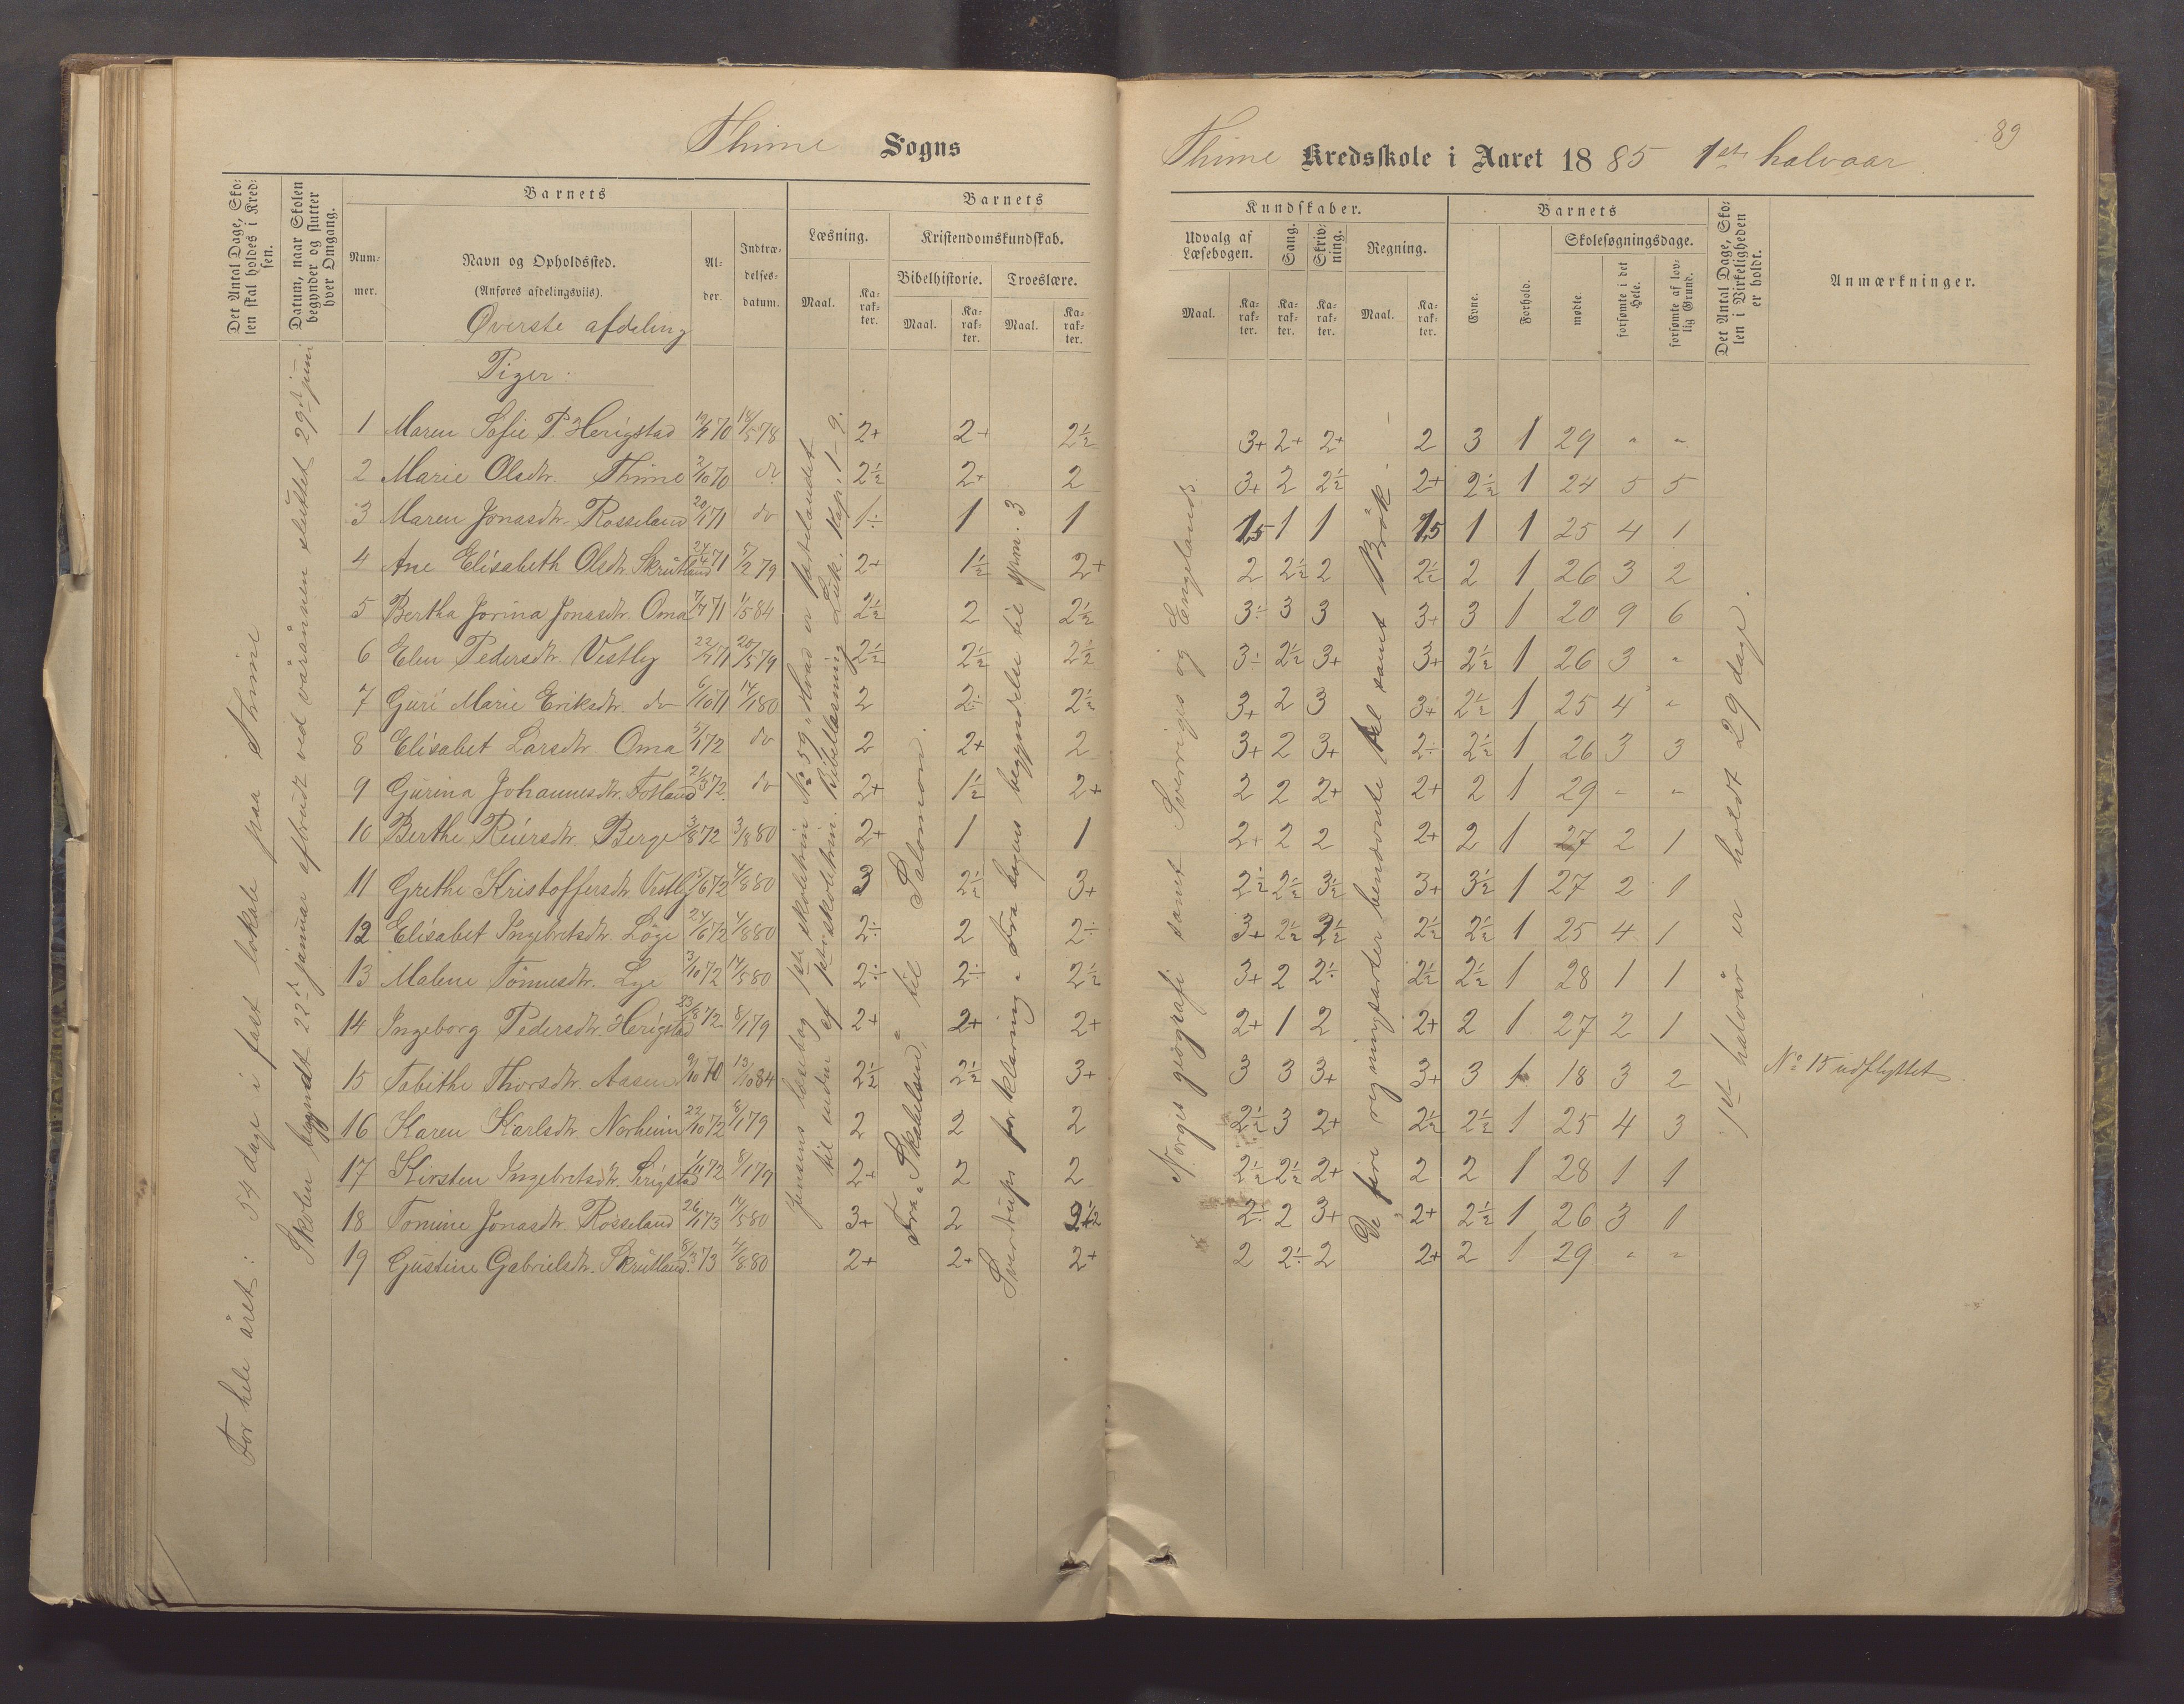 Thime Sogns
Thime Kredsskole i Aaret 1885 1ste halvaar
89
Det Antal Dage, Skolen skal holdes i Kredsen.
Datum, naar Skolen begynder og slutter hver Omgang.
Barnets
Nummer.
Navn og Opholdssted.
(Anføres afdelingsvils).
Alder.
Indtrædelsesdatum.
Barnets
Læsning.
Maal.
Karakter.
Kristendomskundskab.
Bibelhistorie.
Maal.
Karakter.
Troeslære.
Maal.
Karakter.
Kundskaber.
Udvalg af Læsebogen.
Maal.
Karakter.
Sang.
Karakter.
Skrivning.
Karakter.
Regning.
Maal.
Karakter.
Barnets
Evne.
Forhold.
Skolesøgningsdage.
mødte.
forsømte i det Hele.
forsømte af lovlig Grund.
Det Antal Dage, Skolen i Virkeligheden er holdt.
Anmærkninger.
Øverste afdeling
Piger:
For hele året: 54 dage i fast lokale paa Thime
Skolen begyndt 22de januar afbrudt ved våronnen sluttet 29de juni
Jensens læsebog skoletrin No 59 "Hvad er fædrelandet"
til enden af skoletrin. Bibellæsning Luk. Kap. 1-9.
Fra "Skabelsen" til Salomon.
Sverdrups forklaring. Fra bogens begyndelse til spm. 3
Norges geografi samt Sverriges og Engelands.
De fire regningsarter benævnte tal samt Brøk
1ste halvår er holdt 29 dage.
1 Maren Sofie P. Herigstad 70 14/5 78 2+ 2+ 2½ 3+ 2+ 2+ 2 3 1 29 " "
2 Marie Olsdtr. Thime 2/10 70 do 2½ 2+ 2 3+ 2 2½ 2+ 2½ 1 24 5 5
3 Maren Jonasdtr. Rosseland 20/1 71 do 1÷ 1 1 1,5 1 1 1,5 1 1 25 4 1
4 Ane Elisabeth Olsdtr. Skrutland 24/4 71 5/2 79 2+ 1½ 2+ 2 2½ 2 2½ 2 1 26 3 2
5 Bertha Jorina Jonasdtr. Oma 7/7 71 1/5 84 2½ 2 2½ 3÷ 3 3 3+ 3 1 20 9 6
6 Elen Pedersdtr. Vestly 22/7 71 20/5 79 2½ 2½ 2½ 3÷ 2½ 3+ 3+ 2½ 1 26 3 "
7 Guri Marie Eriksdtr. do 6/10 71 14/1 80 2 2÷ 2½ 3+ 2 3 3+ 2½ 1 25 4 "
8 Elisabet Larsdtr. Oma 5/1 72 do 2 2+ 2 3+ 2 3+ 2÷ 2½ 1 26 3 3
9 Gurina Johannesdtr. Fotland 21/3 72. do 2+ 1½ 2+ 2 2 2+ 2+ 2 1 29 " "
10 Berthe Reiersdtr. Berge 3/8 72 3/8 80 2+ 1 1 2+ 2 2 2+ 2 1 27 2 1
11 Grethe Kristoffersdtr. Vestly 5/6 72 4/8 80 3 2½ 3+ 2½ 2½ 3½ 3+ 3½ 1 27 2 1
12 Elisabet Ingebretsdtr. Löge 24/6 72 4/8 80 2÷ 2 2÷ 3+ 2½ 2½ 2½ 2½ 1 25 4 1
13 Malene Tönnesdtr. Lye 3/10 72 14/5 80 2÷ 2÷ 2½ 3+ 2 2÷ 2½ 2½ 1 28 1 1
14 Ingeborg Pedersdtr. Herigstad 23/8 72 8/1 79 2+ 2+ 2+ 2+ 1 2 2+ 2 1 27 2 1
15 Tabithe Thorsdtr. Aasen 9/10 70 13/10 84 2½ 2½ 3+ 3 3 3+ 3+ 3 1 18 3 2 No 15 udflyttet.
16 Karen Karlsdtr. Norheim 22/10 72 8/1 79 2 2 2 2½ 3 2+ 2½ 2½ 1 25 4 3
17 Kirsten Ingebretsdtr. Serigstad 72 8/1 79 2+ 2 2 2½ 2½ 2+ 2 2 1 28 1 1
18 Tomine Jonasdtr. Rosseland 26/1 73 14/5 80 3+ 2 2½ 2÷ 2 3+ 2+ 2½ 1 26 3 1
19 Gustine Gabrielsdtr. Skrutland. 8/3 73 4/8 80 2+ 2+ 2+ 2 2÷ 2 2+ 2 1 29 " "